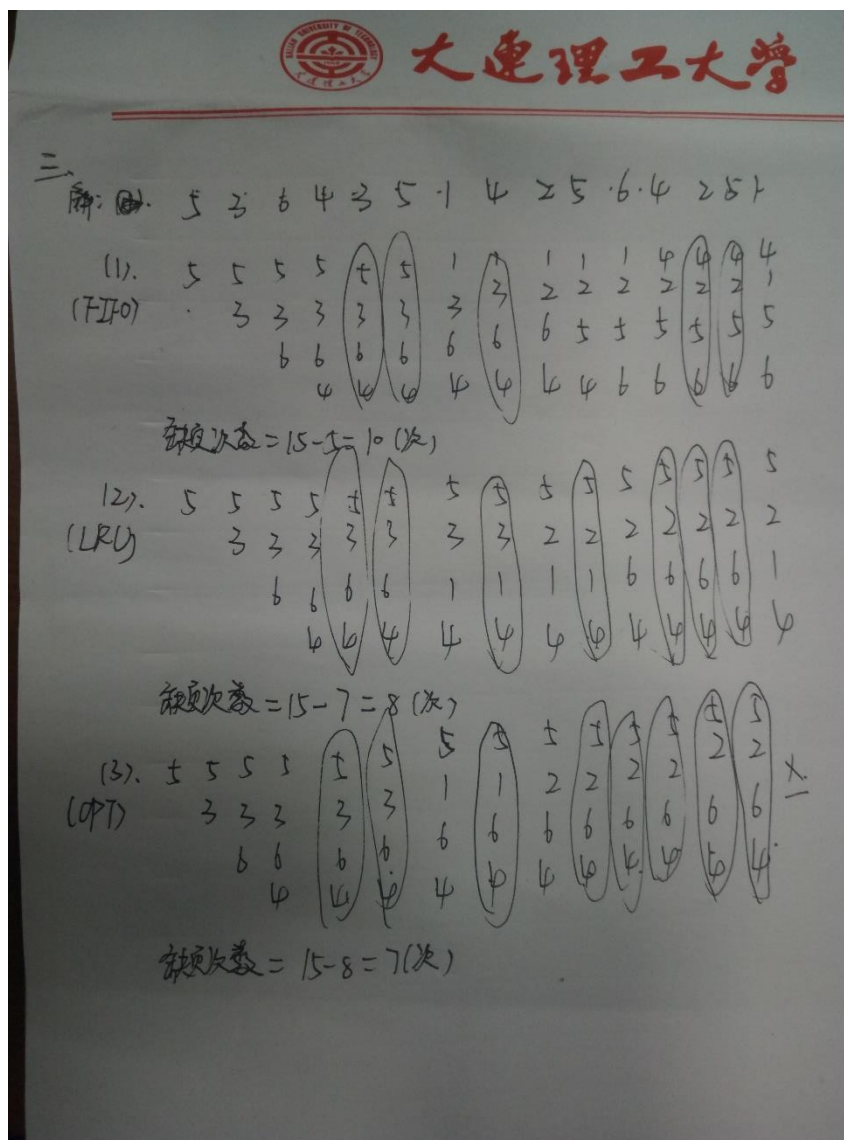 DALIAN UNIVERSITY OF TECHNOLOGY
大連理工大学
三、
解: 5 3 6 4 3 5 1 4 2 5 6 4 2 5 1
(1). 5 5 5 5 5 5 1 1 1 1 1 4 4 4 4
(FIFO) 3 3 3 3 3 3 3 2 2 2 2 2 2 1
6 6 6 6 6 6 6 5 5 5 5 5 5
4 4 4 4 4 4 4 6 6 6 6 6
缺页次数=15-5=10(次)
(2). 5 5 5 5 5 5 5 5 5 5 5 5 5 5 5
(LRU) 3 3 3 3 3 3 3 2 2 2 2 2 2 2
6 6 6 6 1 1 1 1 6 6 6 6 1
4 4 4 4 4 4 4 4 4 4 4 4
缺页次数=15-7=8(次)
(3). 5 5 5 5 5 5 5 5 5 5 5 5 5 5
(OPT) 3 3 3 3 3 1 1 2 2 2 2 2 2
6 6 6 6 6 6 6 6 6 6 6 6
4 4 4 4 4 4 4 4 4 4 4
缺页次数=15-8=7(次)